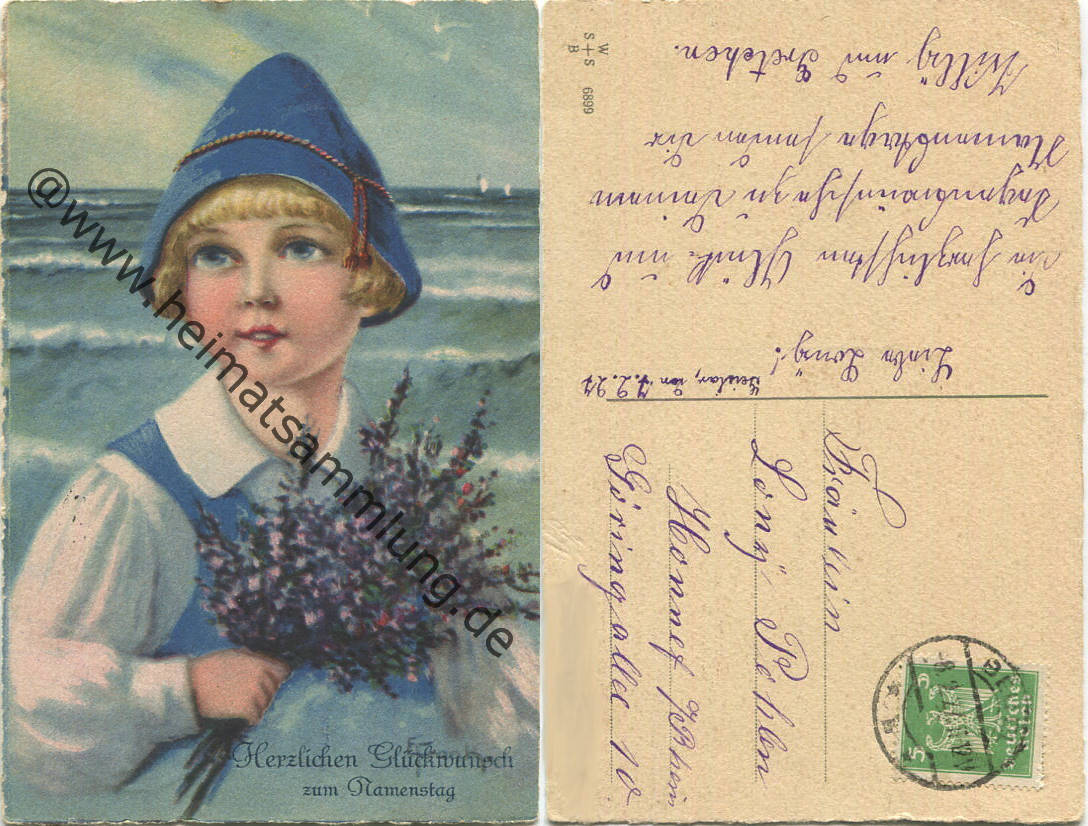 @www.heimatsammlung.de
Herzlichen Glückwunsch
zum Namenstag
W
S+S
B
6899
7.2.27
Liebe Lonÿ!
Die herzlichsten Glück- und
Segenswünsche zu Deinem
Namenstage senden Dir
Willÿ und Gretchen.
Fräulein
Lonÿ
Honnef a/Rhein
Göringallee 10
Deutsches
Reich
5
5